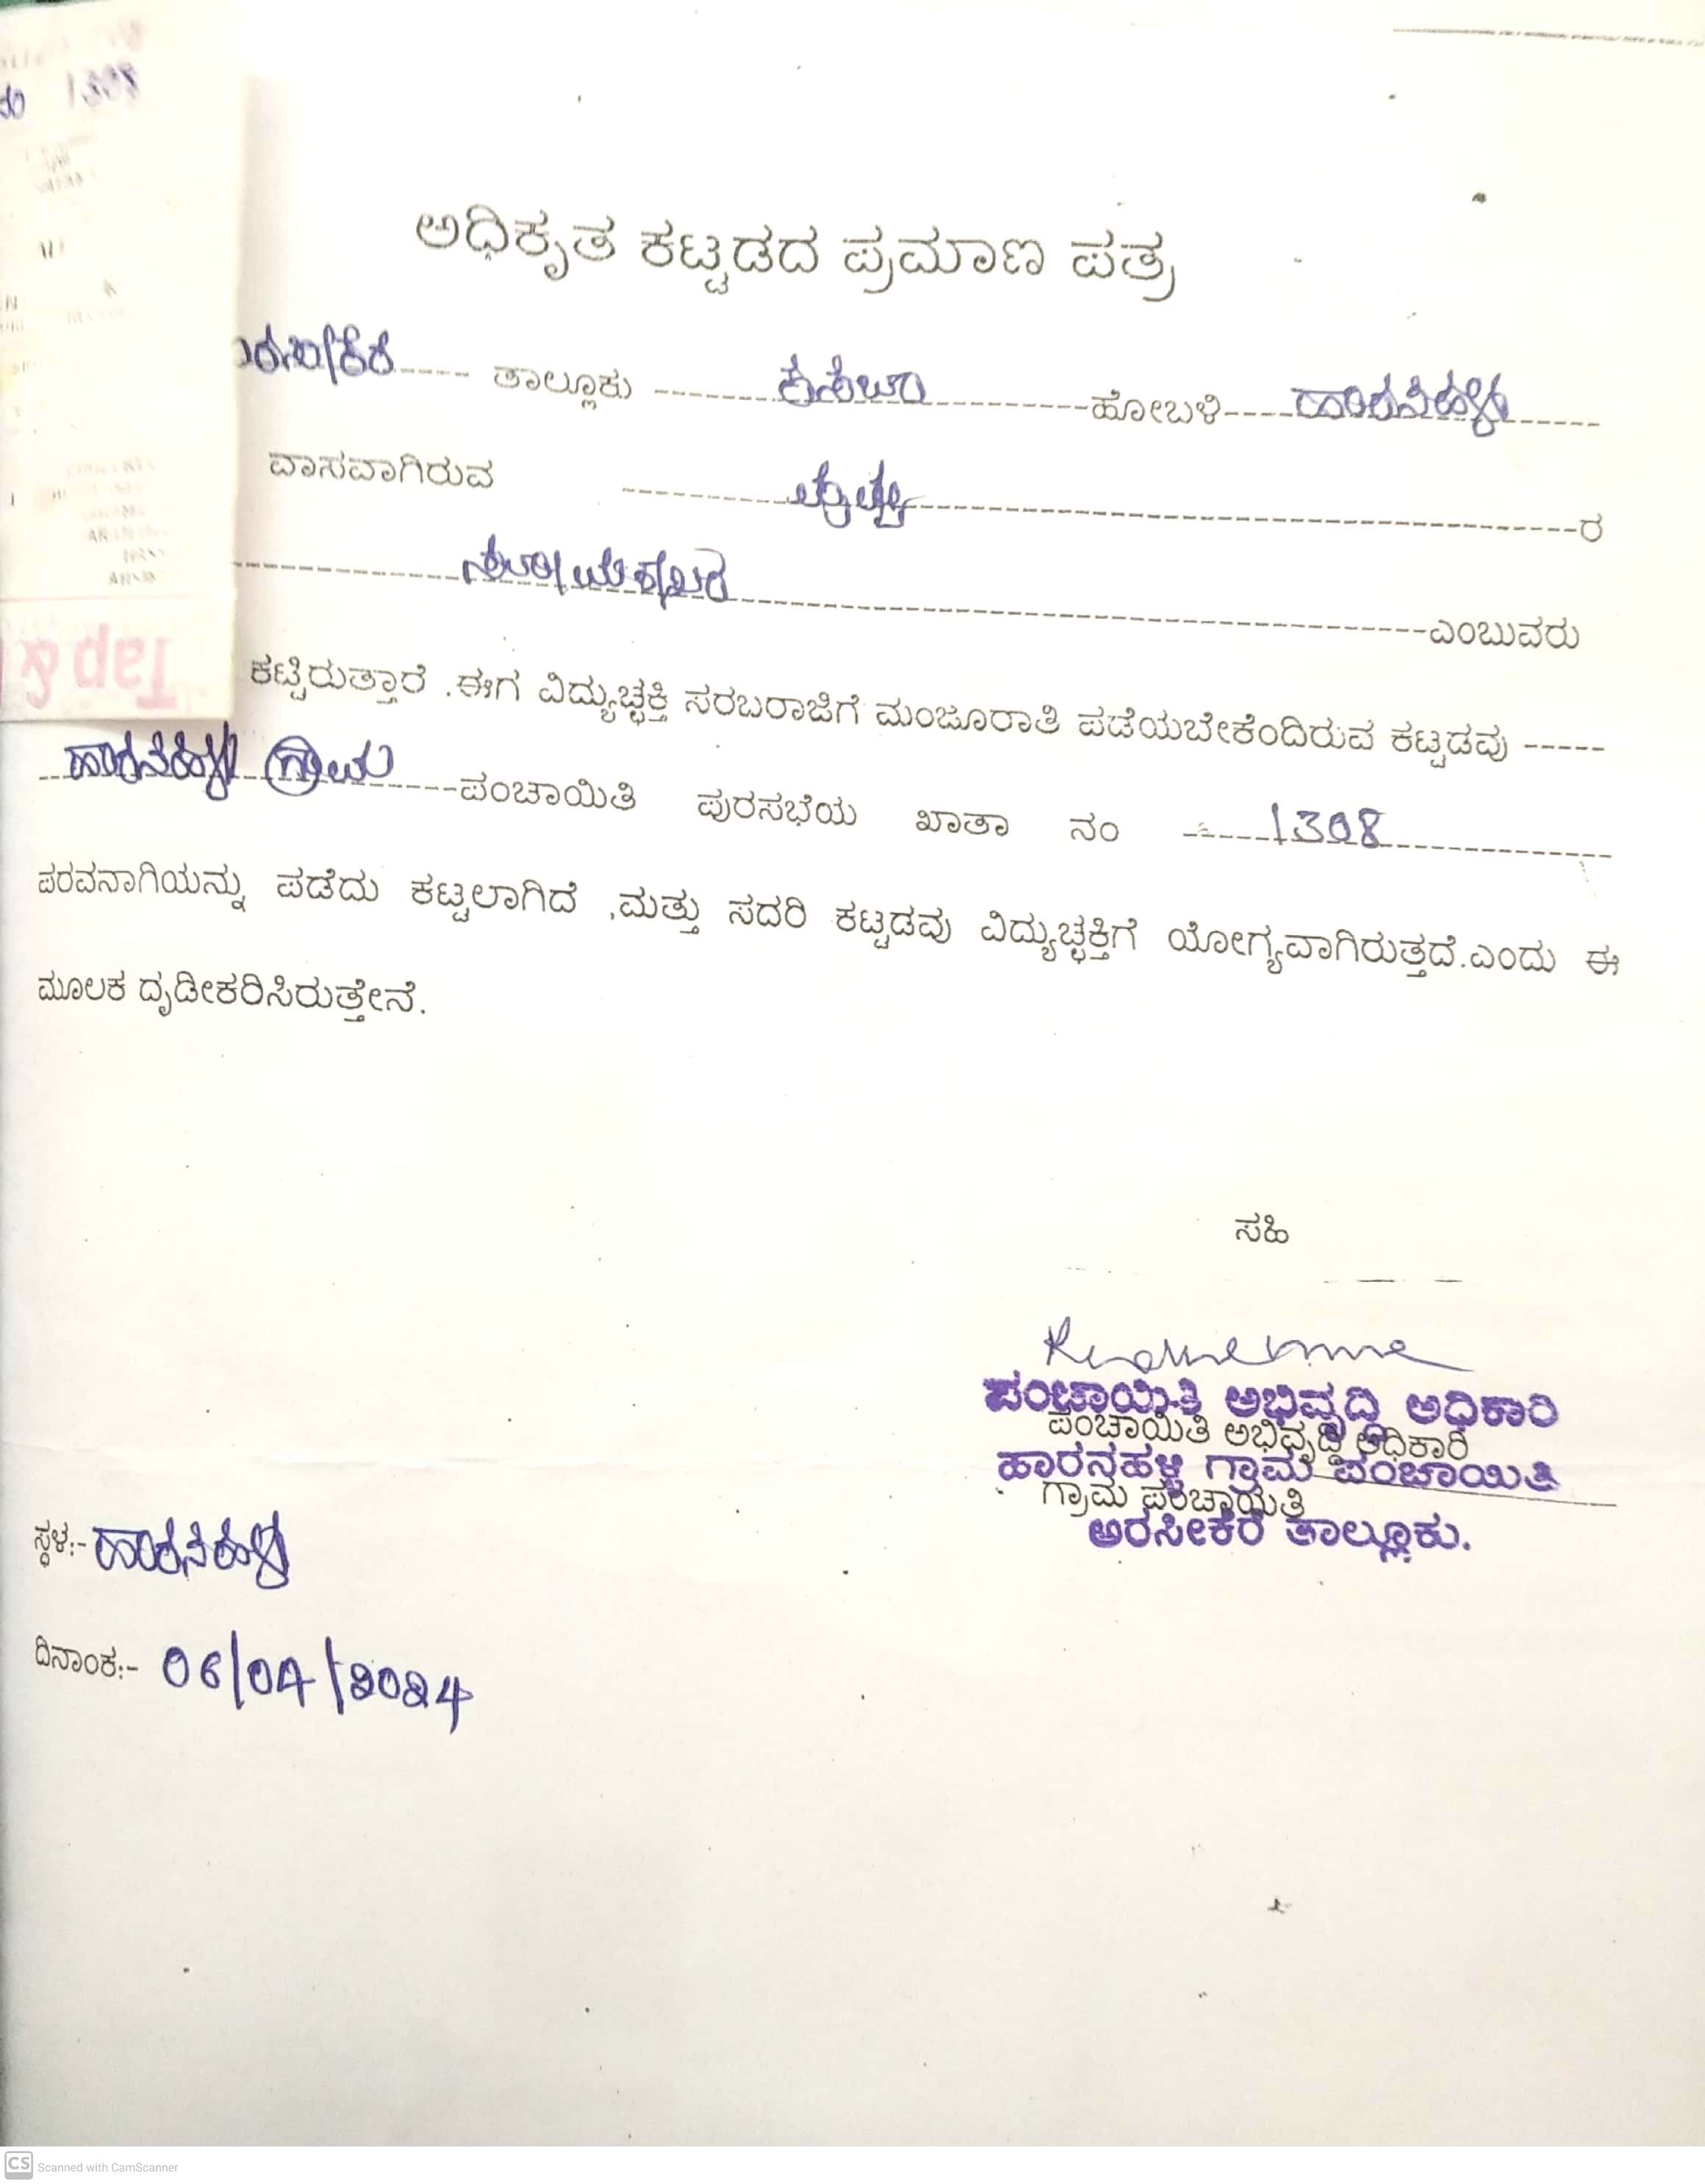 1308
ಅಧಿಕೃತ ಕಟ್ಟಡದ ಪ್ರಮಾಣ ಪತ್ರ
ತಾಲ್ಲೂಕು ಕಸಬಾ ಹೋಬಳಿ ಹಾರನಹಳ್ಳಿ
ವಾಸವಾಗಿರುವ ರ
ಎಂಬುವರು
ಕಟ್ಟಿರುತ್ತಾರೆ .ಈಗ ವಿದ್ಯುಚ್ಛಕ್ತಿ ಸರಬರಾಜಿಗೆ ಮಂಜೂರಾತಿ ಪಡೆಯಬೇಕೆಂದಿರುವ ಕಟ್ಟಡವು -----
ಹಾರನಹಳ್ಳಿ ಗ್ರಾಮ ಪಂಚಾಯಿತಿ ಪುರಸಭೆಯ ಖಾತಾ ನಂ 1308
ಪರವನಾಗಿಯನ್ನು ಪಡೆದು ಕಟ್ಟಲಾಗಿದೆ ,ಮತ್ತು ಸದರಿ ಕಟ್ಟಡವು ವಿದ್ಯುಚ್ಛಕ್ತಿಗೆ ಯೋಗ್ಯವಾಗಿರುತ್ತದೆ.ಎಂದು ಈ
ಮೂಲಕ ದೃಡೀಕರಿಸಿರುತ್ತೇನೆ.
Tap &
ಸಹಿ
ಪಂಚಾಯಿತಿ ಅಭಿವೃದ್ಧಿ ಅಧಿಕಾರಿ
ಪಂಚಾಯಿತಿ ಅಭಿವೃದ್ಧಿ ಅಧಿಕಾರಿ
ಹಾರನಹಳ್ಳಿ ಗ್ರಾಮ ಪಂಚಾಯಿತಿ
ಗ್ರಾಮ ಪಂಚಾಯಿತಿ
ಅರಸೀಕೆರೆ ತಾಲ್ಲೂಕು.
ಸ್ಥಳ:- ಹಾರನಹಳ್ಳಿ
ದಿನಾಂಕ:- 06/04/2024
CS Scanned with CamScanner